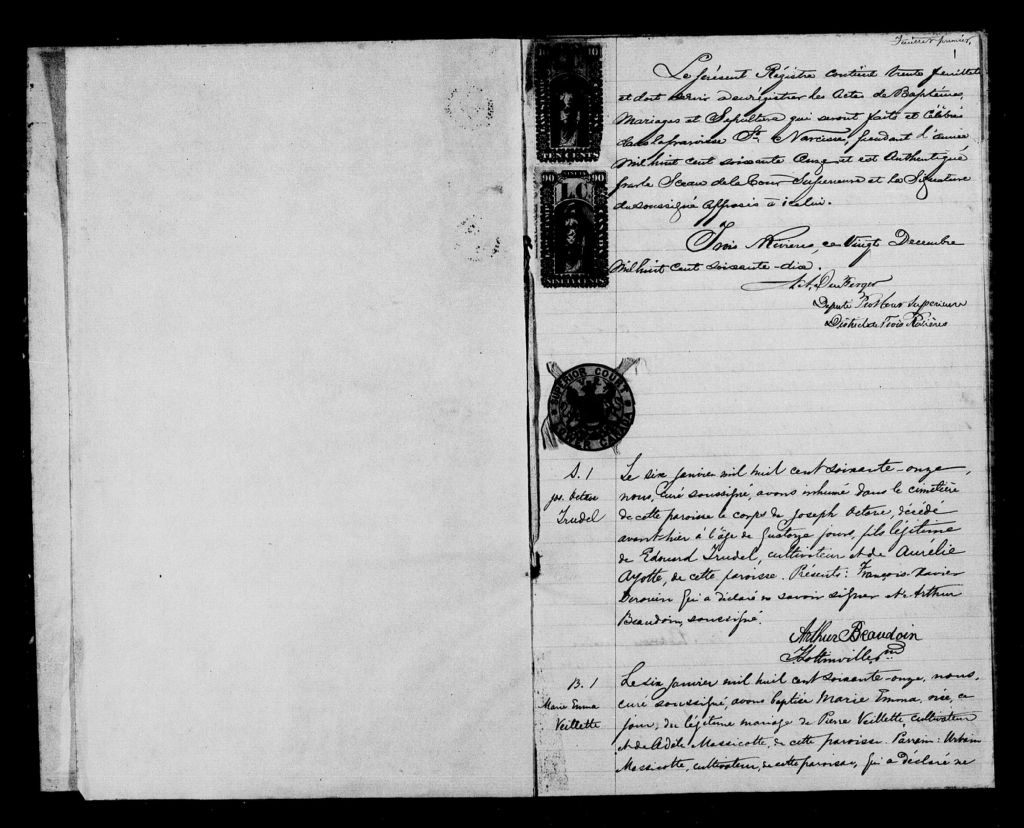 Feuillet premier,
1
Le présent Régistre contient trente feuillets
et doit servir à enrégistrer les Actes de Baptêmes,
Mariages et Sépulture qui seront faits et Célébrés
dans la paroisse St. Narcisse, pendant l'année
Mil huit cent soixante Onze et est Authentiqué
par le Sceau de la Cour Supérieure et la Signature
du soussigné apposés à icelui.
Trois Rivières, ce Vingt Decembre
Mil huit cent soixante-dix.
Député Prot Cour Superieure
District de Trois Rivières
90 90
L C
NINETY CENTS
SUPERIOR COURT
LOWER CANADA
S. 1
Jos. Octave
Trudel
Le six janvier mil huit cent soixante-onze,
nous, curé soussigné, avons inhumé dans le cimetière
de cette paroisse le corps de Joseph Octave, décédé
avant-hier à l'âge de quatorze jours, fils légitime
de Edouard Trudel, cultivateur et de Aurélie
Ayotte, de cette paroisse. Présents: François-Xavier
Derouin qui a déclaré ne savoir signer et Arthur
Beaudoin, soussigné.
Arthur Beaudoin
B. 1
Marie Emma
Veillette
Le six janvier mil huit cent soixante-onze, nous,
curé soussigné, avons baptisé Marie Emma, née, ce
jour, du légitime mariage de Pierre Veillette, cultivateur
et de Adèle Massicotte, de cette paroisse. Parrain: Urbain
Massicotte, cultivateur, de cette paroisse, qui a déclaré ne